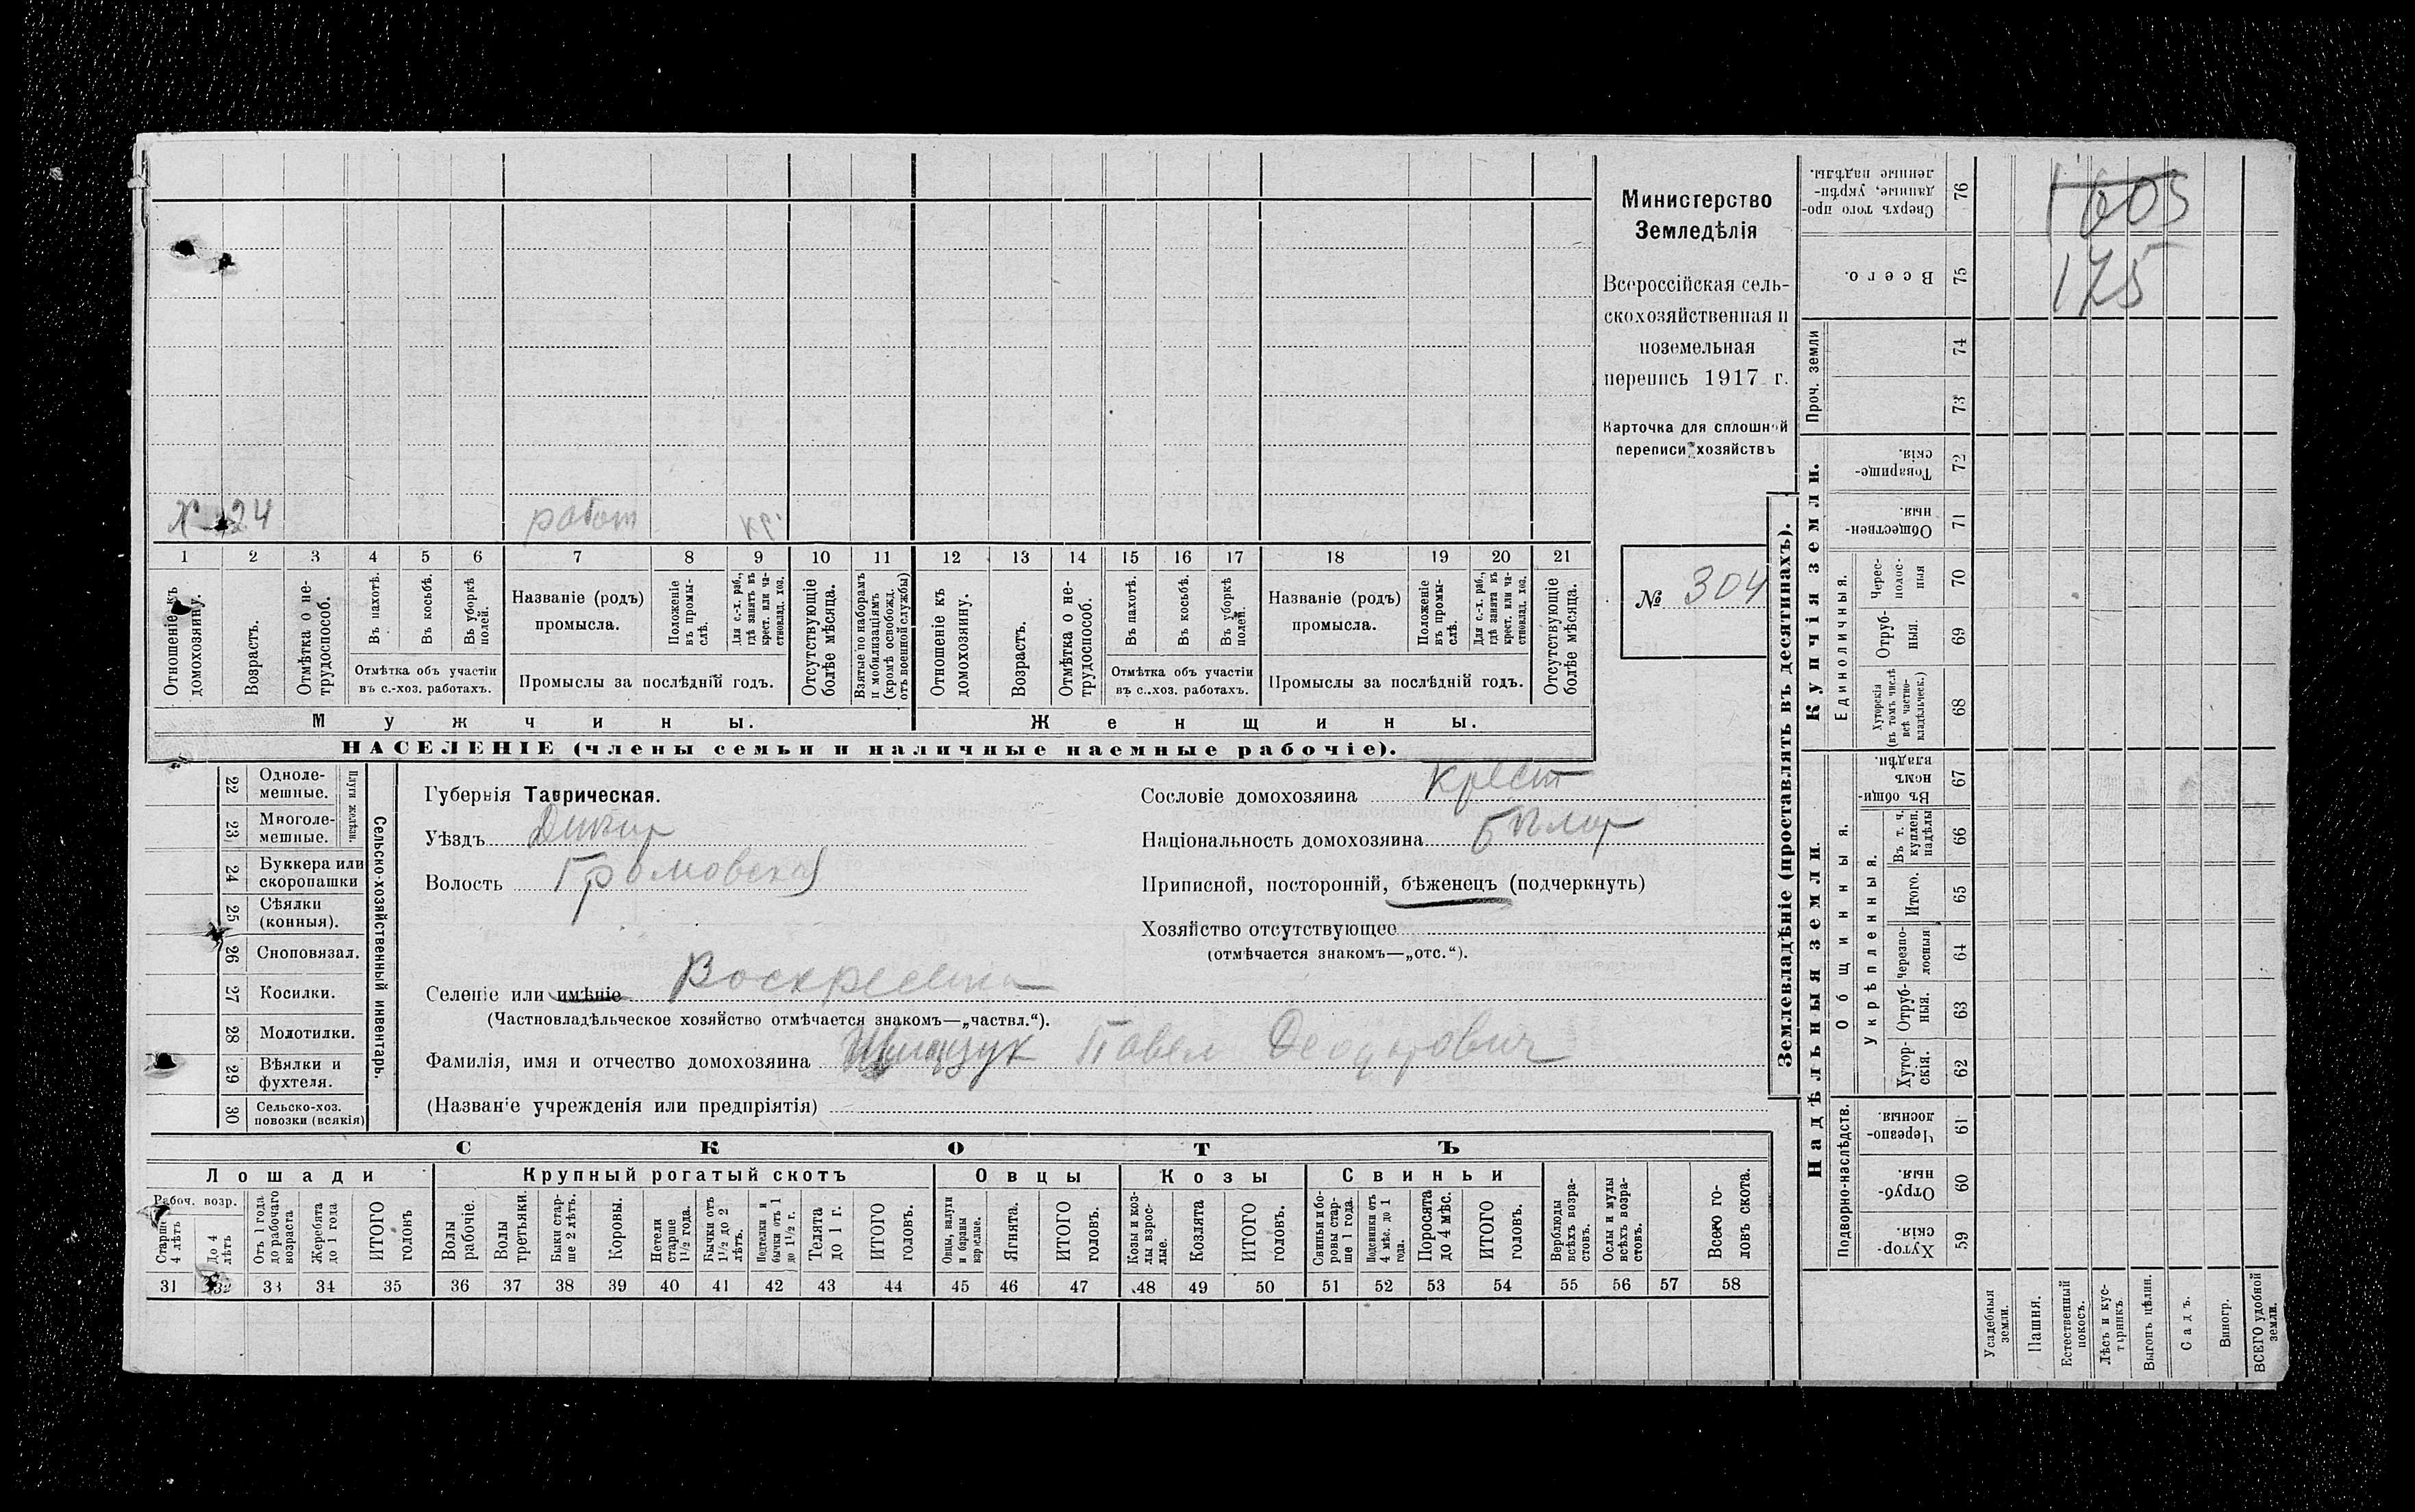 Министерство
Земледѣлія
Всероссійская сель-
скохозяйственная и
поземельная
перепись 1917 г.
Карточка для сплошной
переписи хозяйствъ
№ 304
Х 24 работ кр.
1 2 3 4 5 6 7 8 9 10 11 12 13 14 15 16 17 18 19 20 21
Отношеніе къ домохозяину.
Возрастъ.
Отмѣтка о не-трудоспособ.
Въ пахотѣ.
Въ косьбѣ.
Въ уборкѣ полей.
Отмѣтка объ участіи
въ с.-хоз. работахъ.
Названіе (родъ)
промысла.
Положеніе въ промы-слѣ.
Для с.-х. раб., гдѣ занятъ въ крест. или ча-стновлад. хоз.
Промыслы за послѣдній годъ.
Отсутствующіе болѣе мѣсяца.
Взятые по наборамъ и мобилизаціямъ (кромѣ освобожд. отъ военной службы)
Отношеніе къ домохозяину.
Возрастъ.
Отмѣтка о не-трудоспособ.
Въ пахотѣ.
Въ косьбѣ.
Въ уборкѣ полей.
Отмѣтка объ участіи
въ с.-хоз. работахъ.
Названіе (родъ)
промысла.
Положеніе въ промы-слѣ.
Для с.-х. раб., гдѣ занята въ крест. или ча-стновлад. хоз.
Промыслы за послѣдній годъ.
Отсутствующіе болѣе мѣсяца.
Мужчины. Женщины.
НАСЕЛЕНІЕ (члены семьи и наличные наемные рабочіе).
Сельско-хозяйственный инвентарь.
Плуги желѣзн.
22 Одноле-мешные.
23 Многоле-мешные.
24 Буккера или скоропашки
25 Сѣялки (конныя).
26 Сноповязал.
27 Косилки.
28 Молотилки.
29 Вѣялки и фухтеля.
30 Сельско-хоз. повозки (всякія)
Губернія Таврическая.
Уѣздъ Днѣпр
Волость Громовская
Селеніе или имѣніе
(Частновладѣльческое хозяйство отмѣчается знакомъ—„частвл.“).
Фамилія, имя и отчество домохозяина Павел
(Названіе учрежденія или предпріятія)
Сословіе домохозяина Крест
Національность домохозяина
Приписной, посторонній, бѣженецъ (подчеркнуть)
Хозяйство отсутствующее
(отмѣчается знакомъ—„отс.“).
СКОТЪ
Лошади Крупный рогатый скотъ Овцы Козы Свиньи
Рабоч. возр.
Старше 4 лѣтъ
До 4 лѣтъ
Отъ 1 года до рабочаго возраста
Жеребята до 1 года
ИТОГО головъ
Волы рабочіе.
Волы третьяки.
Быки стар-ше 2 лѣтъ.
Коровы.
Нетели старше 1½ года.
Бычки отъ 1½ до 2 лѣтъ.
Подтелки и бычки отъ 1 до 1½ г.
Телята до 1 г.
ИТОГО головъ.
Овцы, валухи и бараны взрослые.
Ягнята.
ИТОГО головъ.
Козы и коз-лы взрос-лые.
Козлята
ИТОГО головъ.
Свиньи и бо-ровы стар-ше 1 года.
Подсвинки отъ 4 мѣс. до 1 года.
Поросята до 4 мѣс.
ИТОГО головъ.
Верблюды всѣхъ возра-стовъ.
Ослы и мулы всѣхъ возра-стовъ.
Всего го-ловъ скота.
31 32 33 34 35 36 37 38 39 40 41 42 43 44 45 46 47 48 49 50 51 52 53 54 55 56 57 58
Землевладѣніе (проставлять въ десятинахъ).
Надѣльныя земли.
Купчія земли.
Проч. земли
Подворно-наслѣдств.
Общинныя.
Укрѣпленныя.
Единоличныя.
Сверхъ того про-данные, укрѣп-ленные надѣлы. 76
Всего. 75
74
73
Товарище-скія. 72
Обществен-ныя. 71
Черес-полос-ныя 70
Отруб-ныя. 69
Хуторскія (въ томъ числѣ всѣ частно-владѣльческ.) 68
Въ общи-номъ владѣн. 67
Въ т. ч. куплен. надѣлы 66
Итого. 65
Черезпо-лосныя 64
Отруб-ныя. 63
Хутор-скія. 62
Черезпо-лосныя. 61
Отруб-ныя. 60
Хутор-скія. 59
Усадебныя земли.
Пашня.
Естественный покосъ.
Лѣсъ и кус-тарникъ.
Выгонъ цѣлин.
Садъ.
Виногр.
ВСЕГО удобной земли.
1603
175